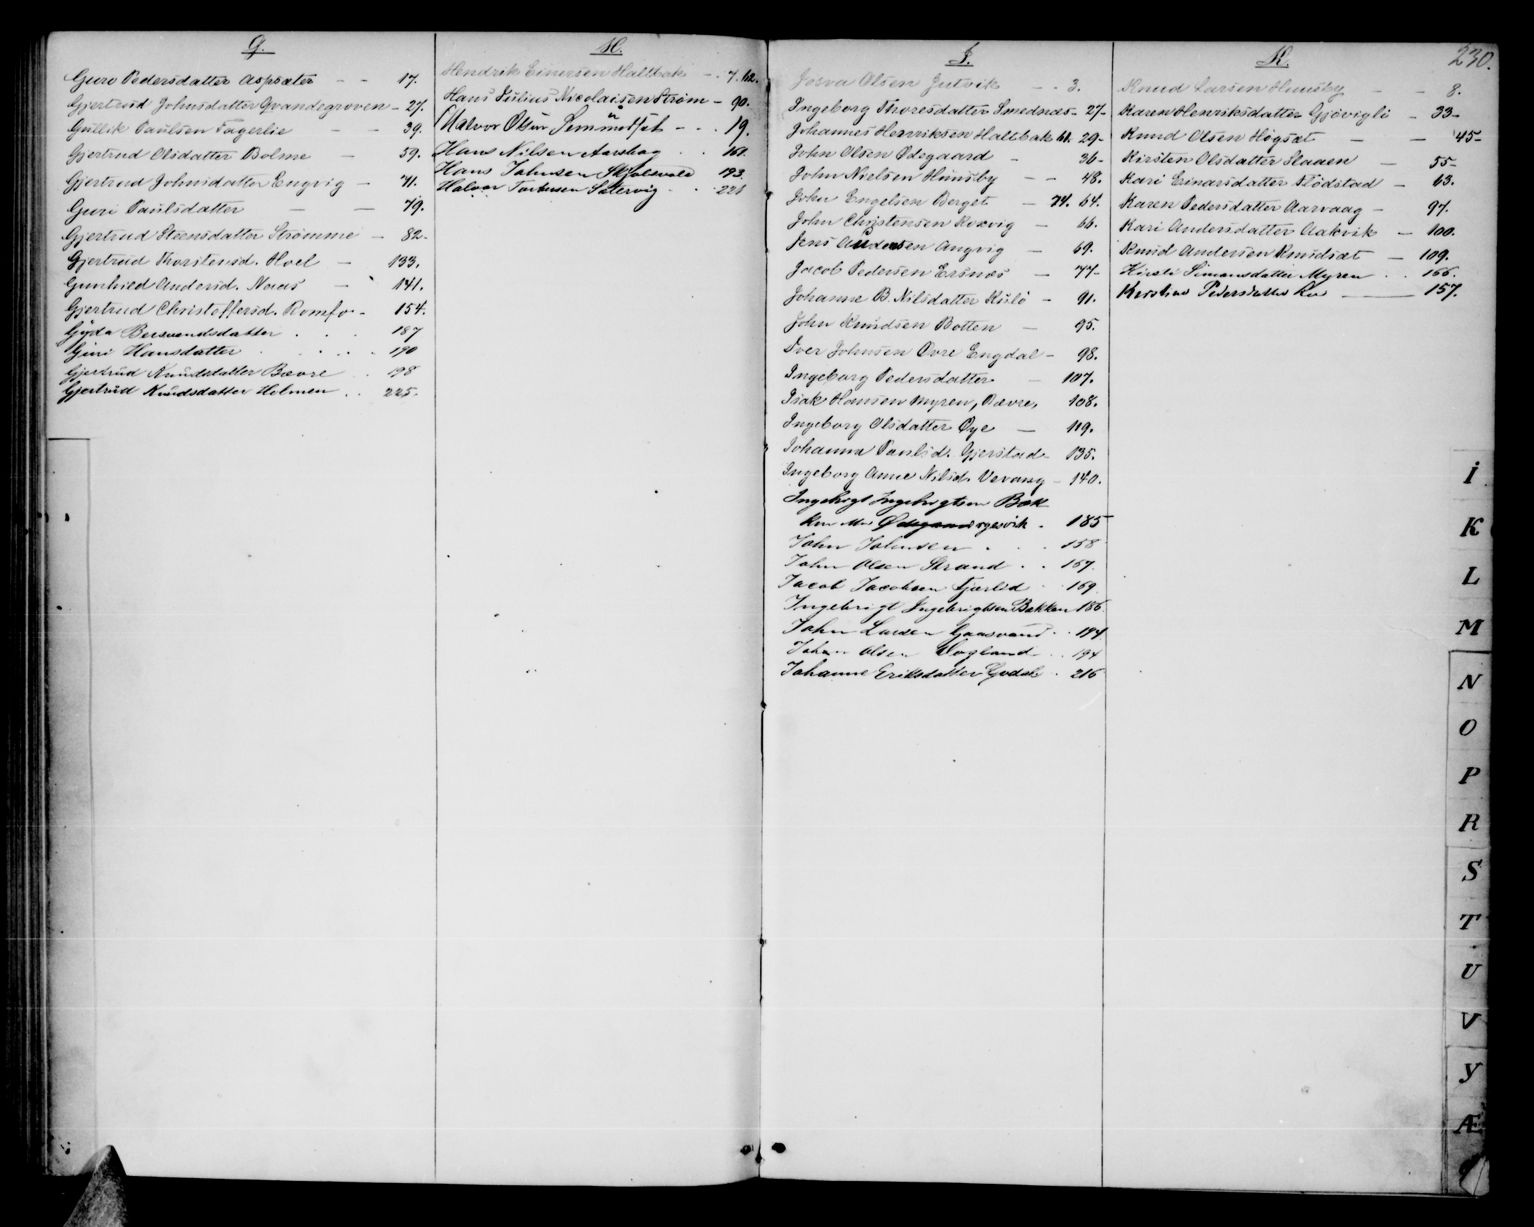 G.
Guro Pedersdatter Aspsæter — — 17.
Gjertrud Johnsdatter Gvandsgroven — 27.
Gullik Paulsen Fagerlie — — 39.
Gjertrud Olsdatter Bolme — 59.
Gjertrud Johnsdatter Engvig — 71.
Guri Paulsdatter — — 79.
Gjertrud Steensdatter Strømme — 82.
Gjertrud Thorstensd. Hoel — 133.
Gunhild Andersd. Naas — 141.
Gjertrud Christoffersd. Romfo — 154.
Gjøda Bersvendsdatter . . . 187
Guri Hansdatter . . . . 190
Gjertrud Knudsdatter Bævre . . 198
Gjertrud Knudsdatter Holmen . . 225.
H.
Hendrik Einersen Haltbak — . 7. 62.
Hans Julius Nicolaisen Strøm — 90.
Halvor Olsen Semmelset — . . 19.
Hans Nilsen Aarshog . . 161.
Hans Johnsen Skjølsvold 193.
Halvor Torkesen Sætervig . . 221
230.
I.
Josva Olsen Jutvik — . 3.
Ingeborg Thoresdatter Smednæs — 27 —
Johannes Henriksen Haltbak 61. 29 —
John Olsen Ødegaard — 36 —
John Nielsen Heinsby — — 48.
John Engelsen Berget — 74. 64.
John Christensen Koxvig — 66.
Jens Andersen Angvig — 69.
Jacob Pedersen Ersnæs — 77 —
Johanne B. Nilsdatter Kulø — 91.
John Knudsen Botten — 95.
Iver Johnsen Øvre Engdal — 98.
Ingeborg Pedersdatter — 107.
Isak Hansen Myren, Bævre, 108.
Ingeborg Olsdatter Øye — 119.
Johanna Paulsd. Gjerstad — 135.
Ingeborg Anne Nilsd. Vevang — 140.
Ingebrigt Ingebrigtsen Bæk
ken 185
John Johnsen . . . 158
John Olsen Strand . . 167.
Jacob Jacobsen Fjærlid . . 169
Ingebrigt Ingebrigtsen Bækken 186
John Larsen Gaasvand . . 194
Johan Olsen Vogland . . 194
Johanne Eriksdatter Godal . 216
K.
Knud Larsen Heinsby — — 8.
Karen Henriksdatter Gjøviglö — 33 —
Knud Olsen Høgsæt — — 45 —
Kirsten Olsdatter Staaen — 55 —
Kari Einarsdatter Flödstad — 63.
Karen Pedersdatter Aarvaag — 97.
Kari Andersdatter Aakvik — 100.
Knud Andersen Knudsæt — 109.
Kirsti Simonsdatter Myren . . 166.
Kirstine Pedersdatter Roe — 157.
I
K
L
M
N
O
P
R
S
T
U
V
Y
Æ
Ø